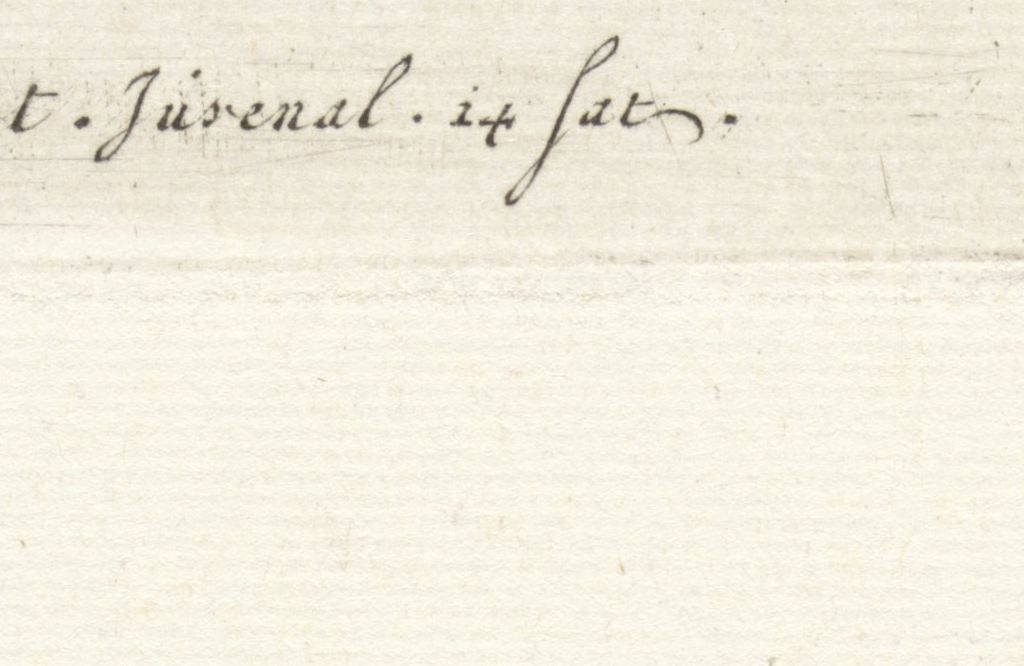 t . Juvenal . 14 sat .